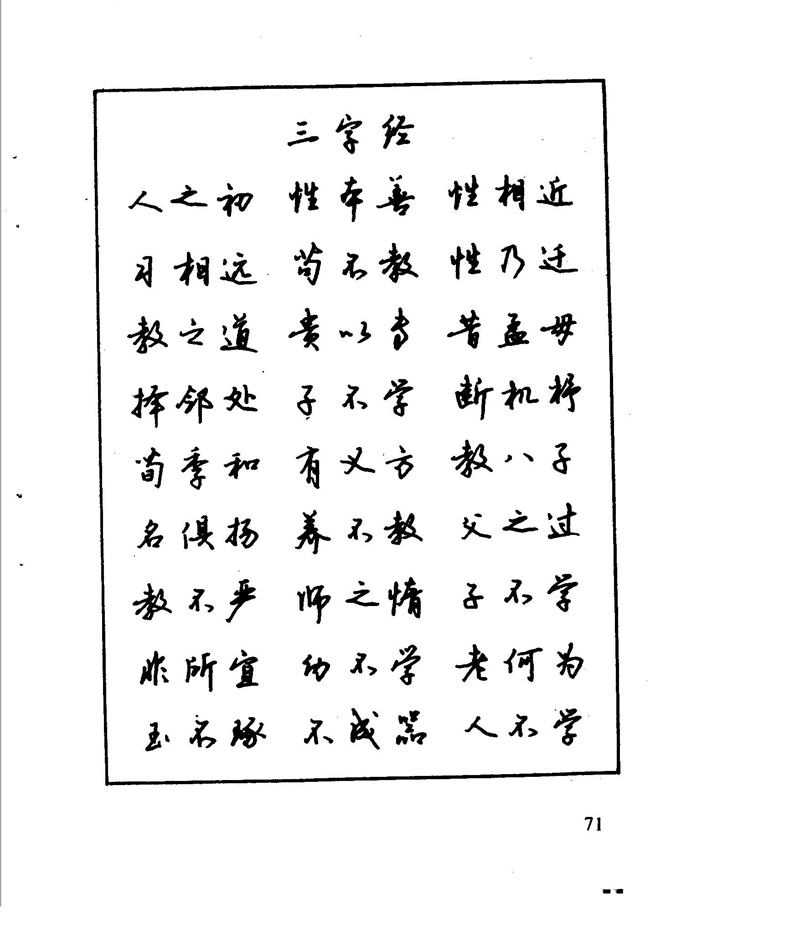 三字经
人之初 性本善 性相近
习相远 苟不教 性乃迁
教之道 贵以专 昔孟母
择邻处 子不学 断机杼
荀季和 有义方 教八子
名俱扬 养不教 父之过
教不严 师之惰 子不学
非所宜 幼不学 老何为
玉不琢 不成器 人不学
71